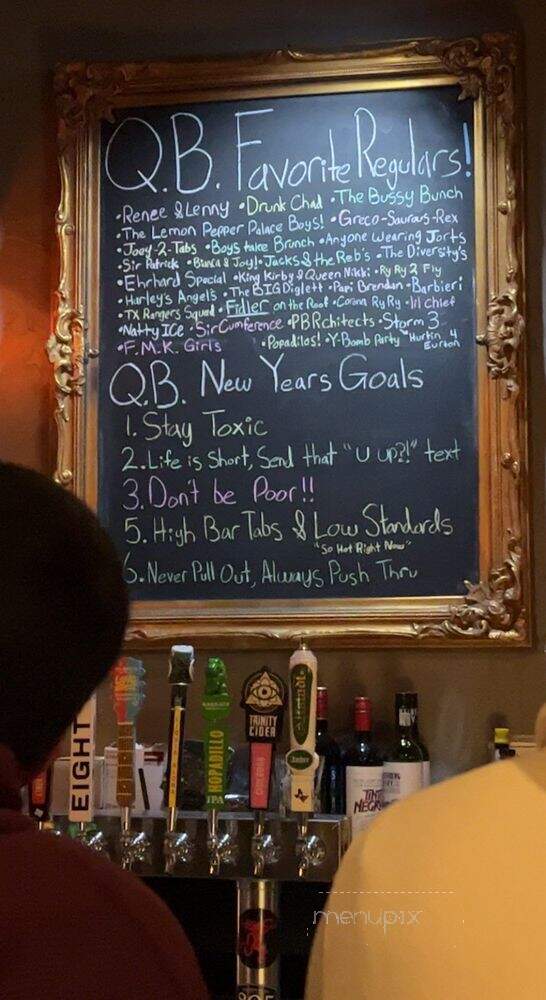 Q.B. Favorite Regulars!
•Renee & Lenny •Drunk Chad •The Bussy Bunch
•The Lemon Pepper Palace Boys! •Greco-Saurous-Rex
•Joey-2-Tabs •Boys take Brunch •Anyone Wearing Jorts
•Sir Patrick •Bianca & Joey! •Jacks & the Reb's •The Diversity's
•Ehrhard Special •King Kirby & Queen Nikki •Ry Ry 2 Fly
•Hurley's Angel's •The BIG Diglett •Papi Brendan •Barbieri
•TX Rangers Squad •Fidler on the Roof •Corona RyRy •lil chief
•Natty Ice •Sir Cumference •PBRchitects •Storm 3
•F.M.K. Girls •Papadilos! •Y-Bomb Party •Hurtin 4 Eurton
Q.B. New Years Goals
1. Stay Toxic
2. Life is Short, Send that "U up?!" text
3. Don't be Poor!!
5. High Bar Tabs & Low Standards
"So Hot Right Now"
6. Never Pull Out, Always Push Thru
EIGHT
HOPADILLO
IPA
TRINITY
CIDER
Altstadt
TINTO
NEGRO
menupix
805